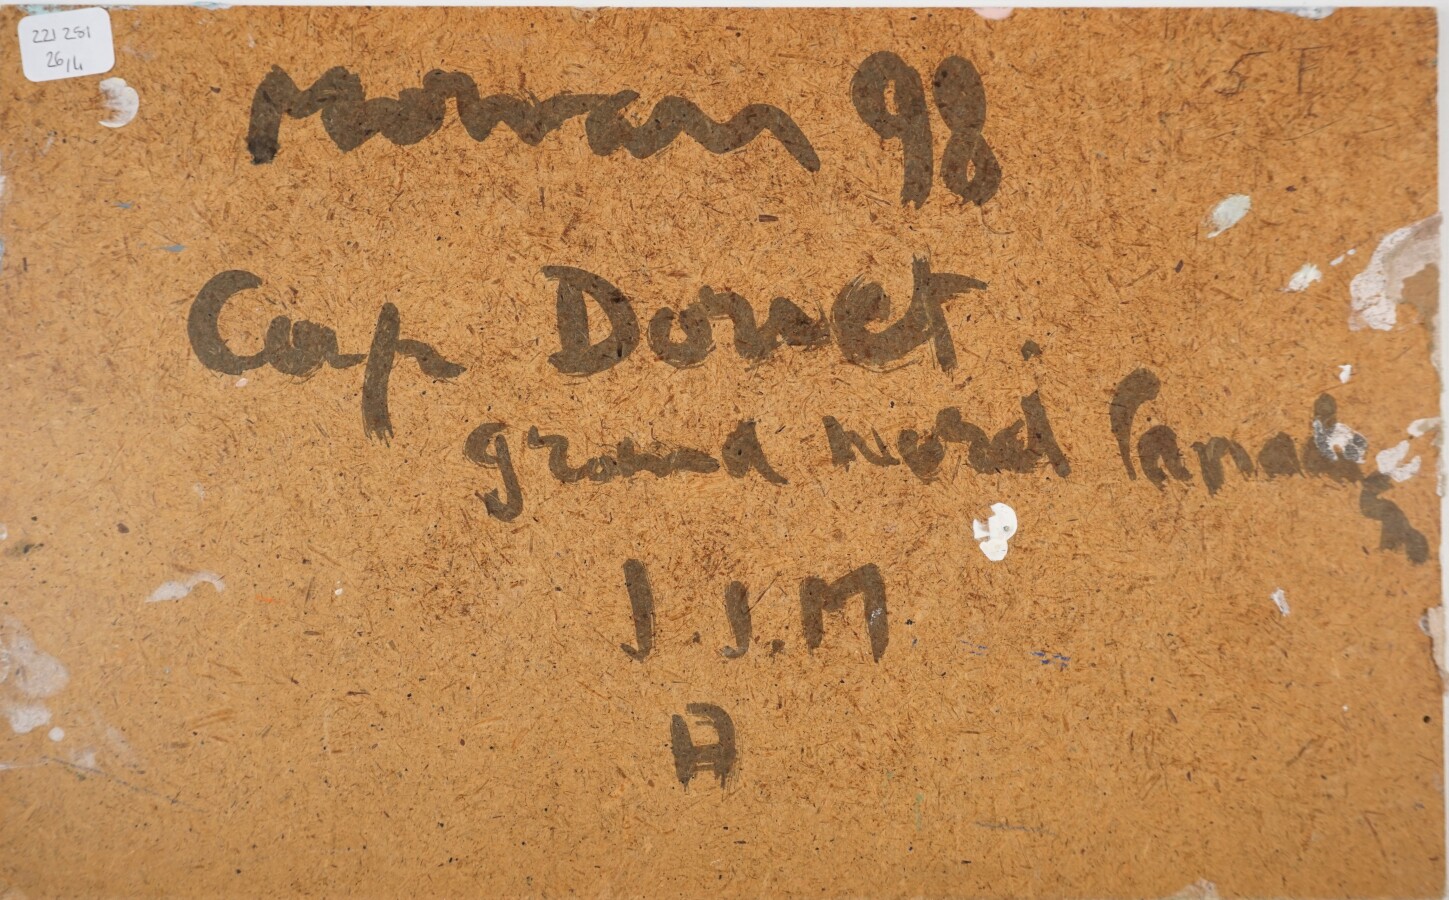 221 281
26/4
Morvan 98
Cap Dorset.
grand nord Canada
J.J.M
A